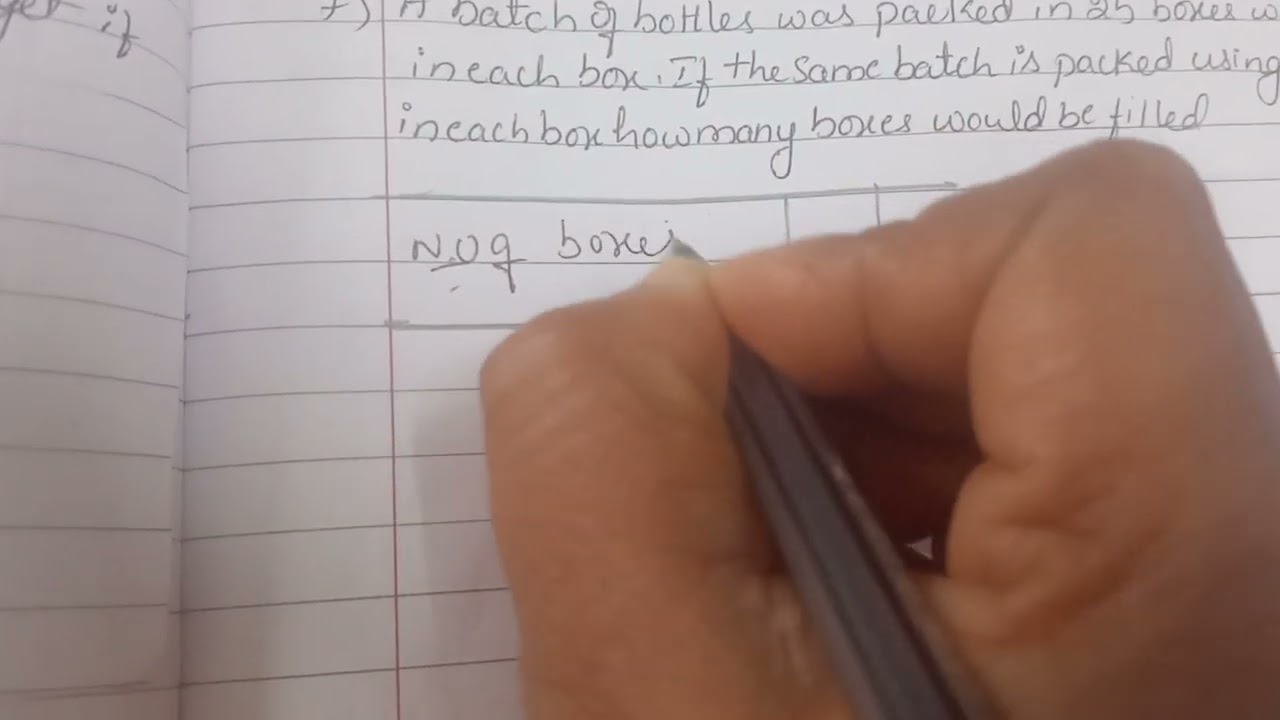 if
7) A batch of bottles was packed in 25 boxes
in each box. If the same batch is packed using
in each box how many boxes would be filled
N.Of boxe